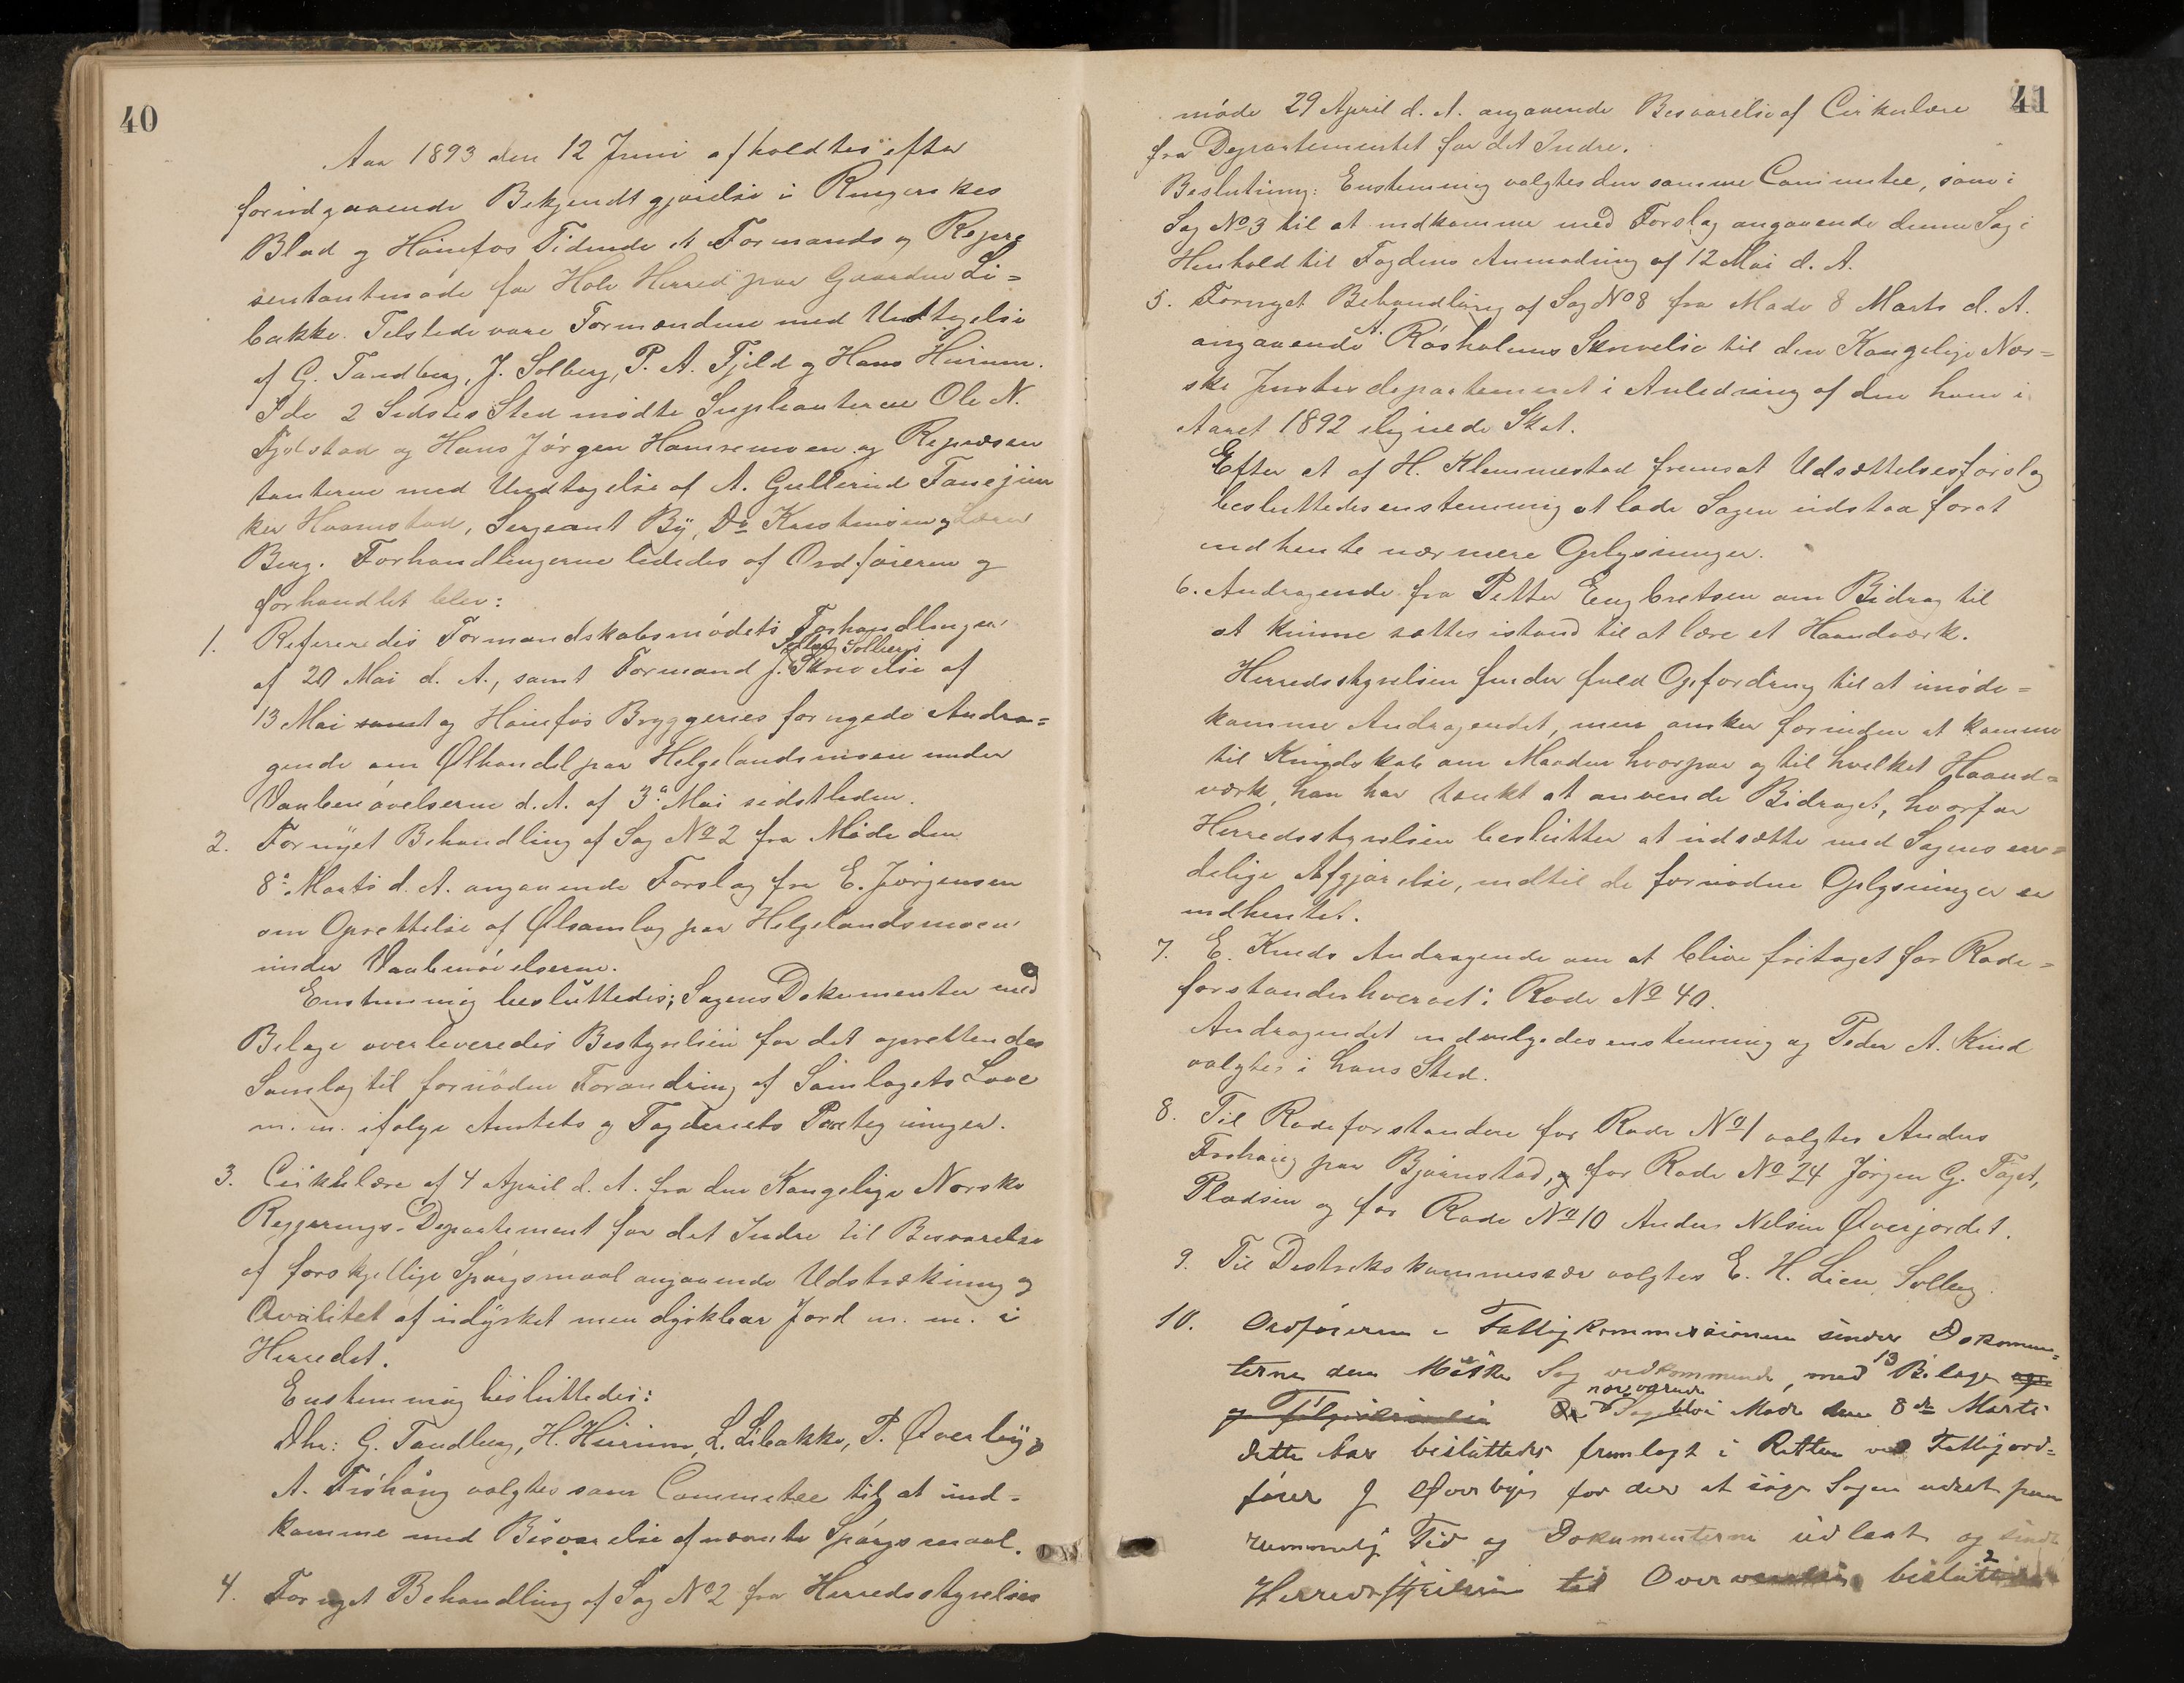 40
Aar 1893 den 12 Juni afholdtes efter
forudgaaende Bekjendtgjørelse i Ringerikes
Blad og Hønefos Tidende et Formands og Repræ
sentantmøde for Hole Herred paa Gaarden Li=
bakke. Tilstede vare Formændene med Undtagelse
af G. Tandberg, J. Solberg, P. A. Fjeld og Hans Hurum.
I de 2 Sidstes Sted mødte Supleanterne Ole N.
Fjelstad og Hans Jørgen Hamremoen og Repræsen
tanterne med Undtagelse af A. Gullerud Fanejun
ker Haarnstad, Sergeant By, Dr. Kristensen og
Berg. Forhandlingerne lededes af Ordføreren og
forhandlet blev:
1. Refereredes Formandskabsmødets Forhandlinger
af 20 Mai d. A., samt Formand J. Solbergs Skrivelse af
13 Mai samt og Hønefos Bryggeries fornyede Andra=
gende om Ølhandel paa Helgelandsmoen under
Vaabenøvelserne d. A. af 3die Mai sidstleden.
2. Fornyet Behandling af Sag No 2 fra Møde den
8de Marts d. A. angaaende Forslag fra E. Jørgensen
om Oprettelse af Ølsamlag paa Helgelandsmoen
under Vaabenøvelserne.
Enstemmig besluttedes; Sagens Dokumenter med
Bilage overleveredes Bestyrelsen for det oprettendes
Samlag til fornøden Forandring af Samlagets Love
m. m. ifølge Amtets og Fogderiets Paategninger.
3. Cirkulære af 4 April d. A. fra den Kongelige Norske
Regjerings-Departement for det Indre til Besvarelse
af forskjellige Spørgsmaal angaaende Udstrækning og
Qvalitet af udyrket men dyrkbar Jord m. m. i
Herredet.
Enstemmig besluttedes:
Dhr: G. Tandberg, H. Hurum, L. Libakke, P. Øverby og
A. Frøhaug valgtes som Committee til at ind-
komme med Besvarelse af nævnte Spørgsmaal.
4. Fornyet Behandling af Sag No 2 fra Herredsstyrelses
41
møde 29 April d. A. angaaende Besvarelse af Cirkulære
fra Departementet for det Indre.
Beslutning: Enstemmig valgtes den samme Committee, som i
Sag No 3 til at indkomme med Forslag angaaende denne Sag i
Henhold til Fogdens Anmodning af 12 Mai d. A.
5. Fornyet Behandling af Sag No 8 fra Møde 8 Marts d. A.
angaaende A. Røsholms Skrivelse til den Kongelige Nor=
ske Justisdepartement i Anledning af den ham i
Aaret 1892 ilignede Skat.
Efter et af H. Klemmestad fremsat Udsættelsesforslag
besluttedes enstemmig at lade Sagen udstaa forat
indhente nærmere Oplysninger.
6. Andragende fra Petter Engbretsen om Bidrag til
at kunne sættes istand til at lære et Haandværk.
Herredsstyrelsen finder fuld Opfordring til at imøde=
komme Andragendet, men ønsker forinden at komme
til Kundskab om Maaden hvorpaa og til hvilket Haand=
værk, han har tænkt at anvende Bidraget, hvorfor
Herredsstyrelsen beslutter at udsætte med Sagens en=
delige Afgjørelse, indtil de fornødne Oplysninger er
indhentet.
7. E. Kinds Andragende om at blive fritaget for Rode=
forstanderhvervet i Rode No 40.
Andragendet indvilgedes enstemmig og Peder A. Kind
valgtes i hans Sted.
8. Til Rodeforstandere for Rode No 1 valgtes Anders
Frøhaug paa Bjørnstad, og for Rode No 24 Jørgen G. Faget,
Pladsen og for Rode No 10 Anders Nilsen Øverjordet.
9. Til Distrikskommissær valgtes E. H. Lien, Solberg.
10. Ordføreren i Fattigkommissionen sender Dokumen=
terne den Sag vedkommende, med 13 Bilage
nærværende Sag blev i Møde den 8de Marts
dette Aar besluttedes fremlagt i Retten ved Fattigord=
fører J Øverby for der at søge Sagen udsat paa
rummelig Tid og Dokumenterne udlaant og sendt
Herredsstyrelsen til